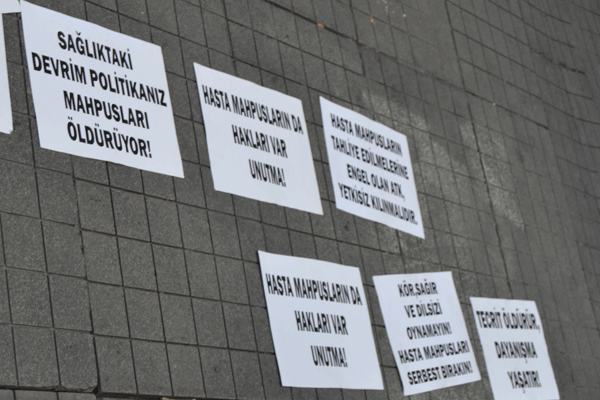 SAĞLIKTAKİ
DEVRİM POLİTİKANIZ
MAHPUSLARI
ÖLDÜRÜYOR!
HASTA MAHPUSLARIN DA
HAKLARI VAR
UNUTMA!
HASTA MAHPUSLARIN
TAHLİYE EDİLMELERİNE
ENGEL OLAN ATK,
YETKİSİZ KILINMALIDIR.
HASTA MAHPUSLARIN DA
HAKLARI VAR
UNUTMA!
KÖR,SAĞIR
VE DİLSİZİ
OYNAMAYIN!
HASTA MAHPUSLARI
SERBEST BIRAKIN!
TECRİT ÖLDÜRÜR,
DAYANIŞMA
YAŞATIR!